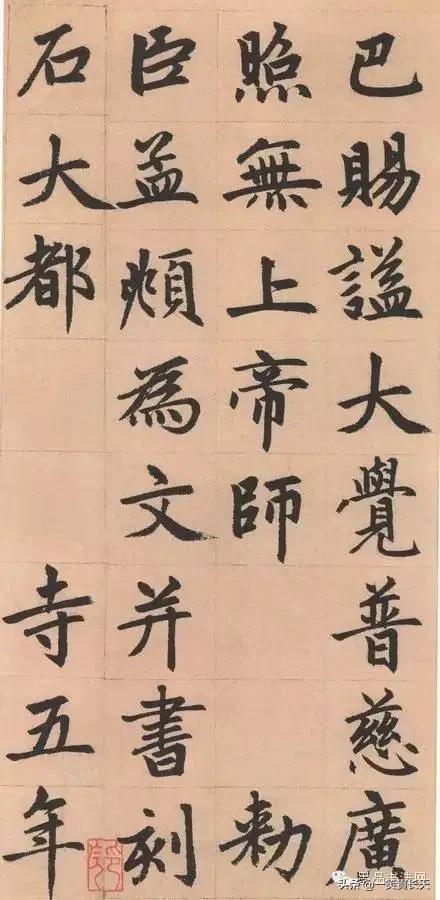 巴賜謚大覺普慈廣
照無上帝師 勅
臣孟頫為文并書刻
石大都 寺五年
头条@一笑贯长天